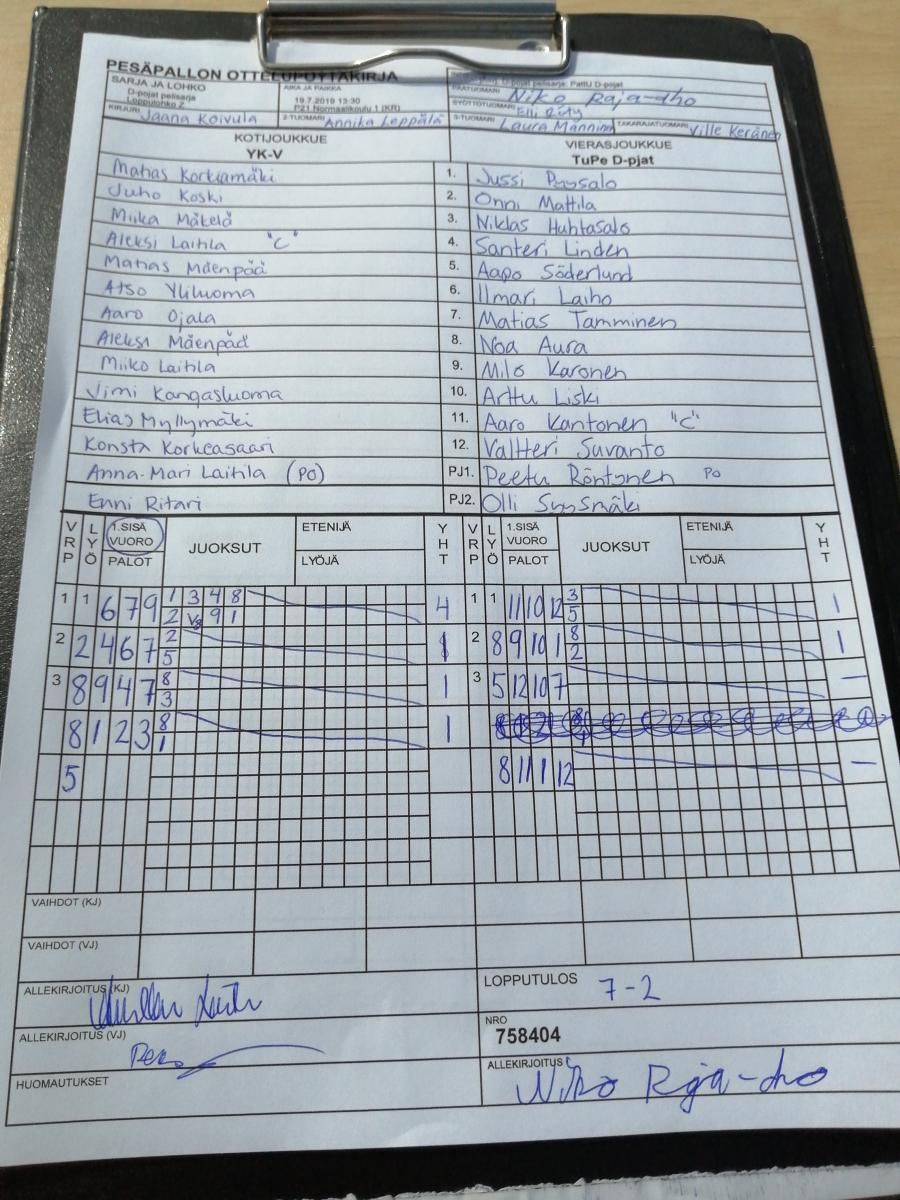 PESÄPALLON OTTELUPÖYTÄKIRJA
SARJA JA LOHKO
D-pojat pelisarja
Loppulohko Z
AIKA JA PAIKKA
19.7.2019 13:30
P21 Normaalikoulu 1 (KR)
D-pojat pelisarja: PattU D-pojat
PÄÄTUOMARI Niko Raja-aho
SYÖTTÖTUOMARI Elli
KIRJURI Jaana Koivula
2-TUOMARI Annika Leppälä
3-TUOMARI Laura Manninn
TAKARAJATUOMARI Ville Keränen
KOTIJOUKKUE
YK-V
VIERASJOUKKUE
TuPe D-pjat
Matias Korkiamäki 1. Jussi Puusalo
Juho Koski 2. Onni Mattila
Miika Mäkelä 3. Niklas Huhtasalo
Aleksi Laitila "C" 4. Santeri Linden
Matias Mäenpää 5. Aapo Söderlund
Atso Yliluoma 6. Ilmari Laiho
Aaro Ojala 7. Matias Tamminen
Aleksi Mäenpää 8. Noa Aura
Miiko Laitila 9. Milo Karonen
Jimi Kangasluoma 10. Arttu Liski
Elias Myllymäki 11. Aaro Kantonen "C"
Konsta Korkeasaari 12. Valtteri Suvanto
Anna-Mari Laitila (PO) PJ1. Peetu Röntönen PO
Enni Ritari PJ2. Olli Syysmäki
VRP LYÖ 1.SISÄ VUORO PALOT JUOKSUT ETENIJÄ LYÖJÄ YHT VRP LYÖ 1.SISÄ VUORO PALOT JUOKSUT ETENIJÄ LYÖJÄ YHT
1 1 6 7 9 1 3 4 8 4 1 1 11 10 12 3 1
2 V3 9 1 5
2 2 4 6 7 2 1 2 8 9 10 1 8 1
5 2
3 8 9 4 7 8 1 3 5 12 10 7 —
3
8 1 2 3 8 1
1
5 8 11 1 12 —
VAIHDOT (KJ)
VAIHDOT (VJ)
ALLEKIRJOITUS (KJ)
LOPPUTULOS 7-2
ALLEKIRJOITUS (VJ)
NRO
758404
HUOMAUTUKSET
ALLEKIRJOITUS Niko Raja-aho